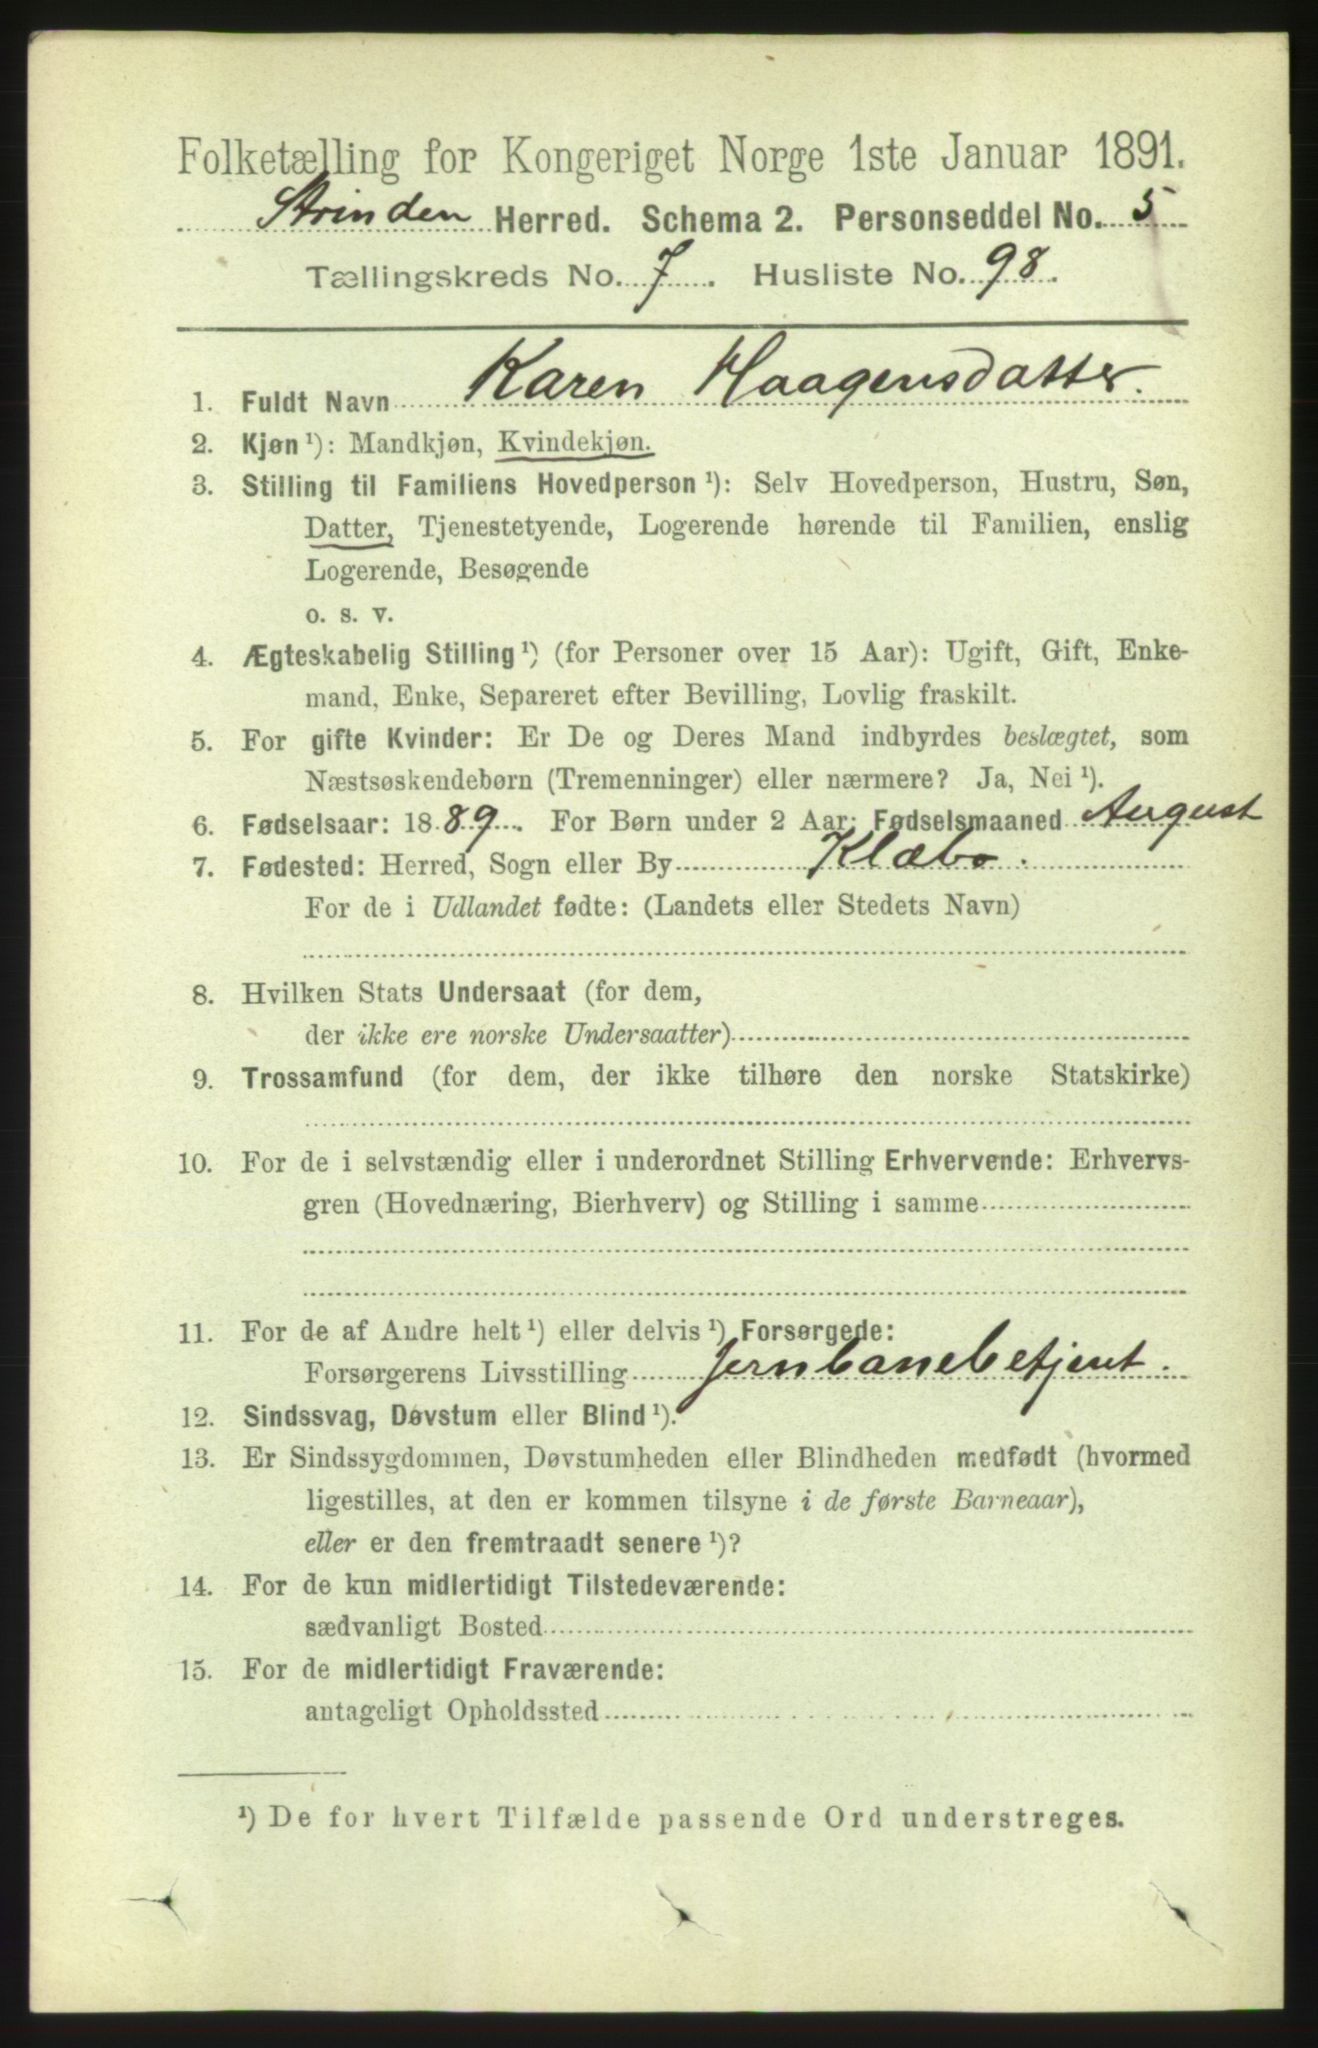 Folketælling for Kongeriget Norge 1ste Januar 1891.
Strinden Herred. Schema 2. Personseddel No. 5
Tællingskreds No. 7. Husliste No. 98.
1. Fuldt Navn Karen Haagensdatter.
2. Kjøn ¹): Mandkjøn, Kvindekjøn.
3. Stilling til Familiens Hovedperson ¹): Selv Hovedperson, Hustru, Søn,
Datter, Tjenestetyende, Logerende hørende til Familien, enslig
Logerende, Besøgende
o. s. v.
4. Ægteskabelig Stilling ¹) (for Personer over 15 Aar): Ugift, Gift, Enke-
mand, Enke, Separeret efter Bevilling, Lovlig fraskilt.
5. For gifte Kvinder: Er De og Deres Mand indbyrdes beslægtet, som
Næstsøskendebørn (Tremenninger) eller nærmere? Ja, Nei ¹).
6. Fødselsaar: 1889. For Børn under 2 Aar: Fødselsmaaned August
7. Fødested: Herred, Sogn eller By Klæbo.
For de i Udlandet fødte: (Landets eller Stedets Navn)
8. Hvilken Stats Undersaat (for dem,
der ikke ere norske Undersaatter)
9. Trossamfund (for dem, der ikke tilhøre den norske Statskirke)
10. For de i selvstændig eller i underordnet Stilling Erhvervende: Erhvervs-
gren (Hovednæring, Bierhverv) og Stilling i samme
11. For de af Andre helt ¹) eller delvis ¹) Forsørgede:
Forsørgerens Livsstilling Jernbanebetjent.
12. Sindssvag, Døvstum eller Blind ¹).
13. Er Sindssygdommen, Døvstumheden eller Blindheden medfødt (hvormed
ligestilles, at den er kommen tilsyne i de første Barneaar),
eller er den fremtraadt senere ¹)?
14. For de kun midlertidigt Tilstedeværende:
sædvanligt Bosted
15. For de midlertidigt Fraværende:
antageligt Opholdssted
¹) De for hvert Tilfælde passende Ord understreges.